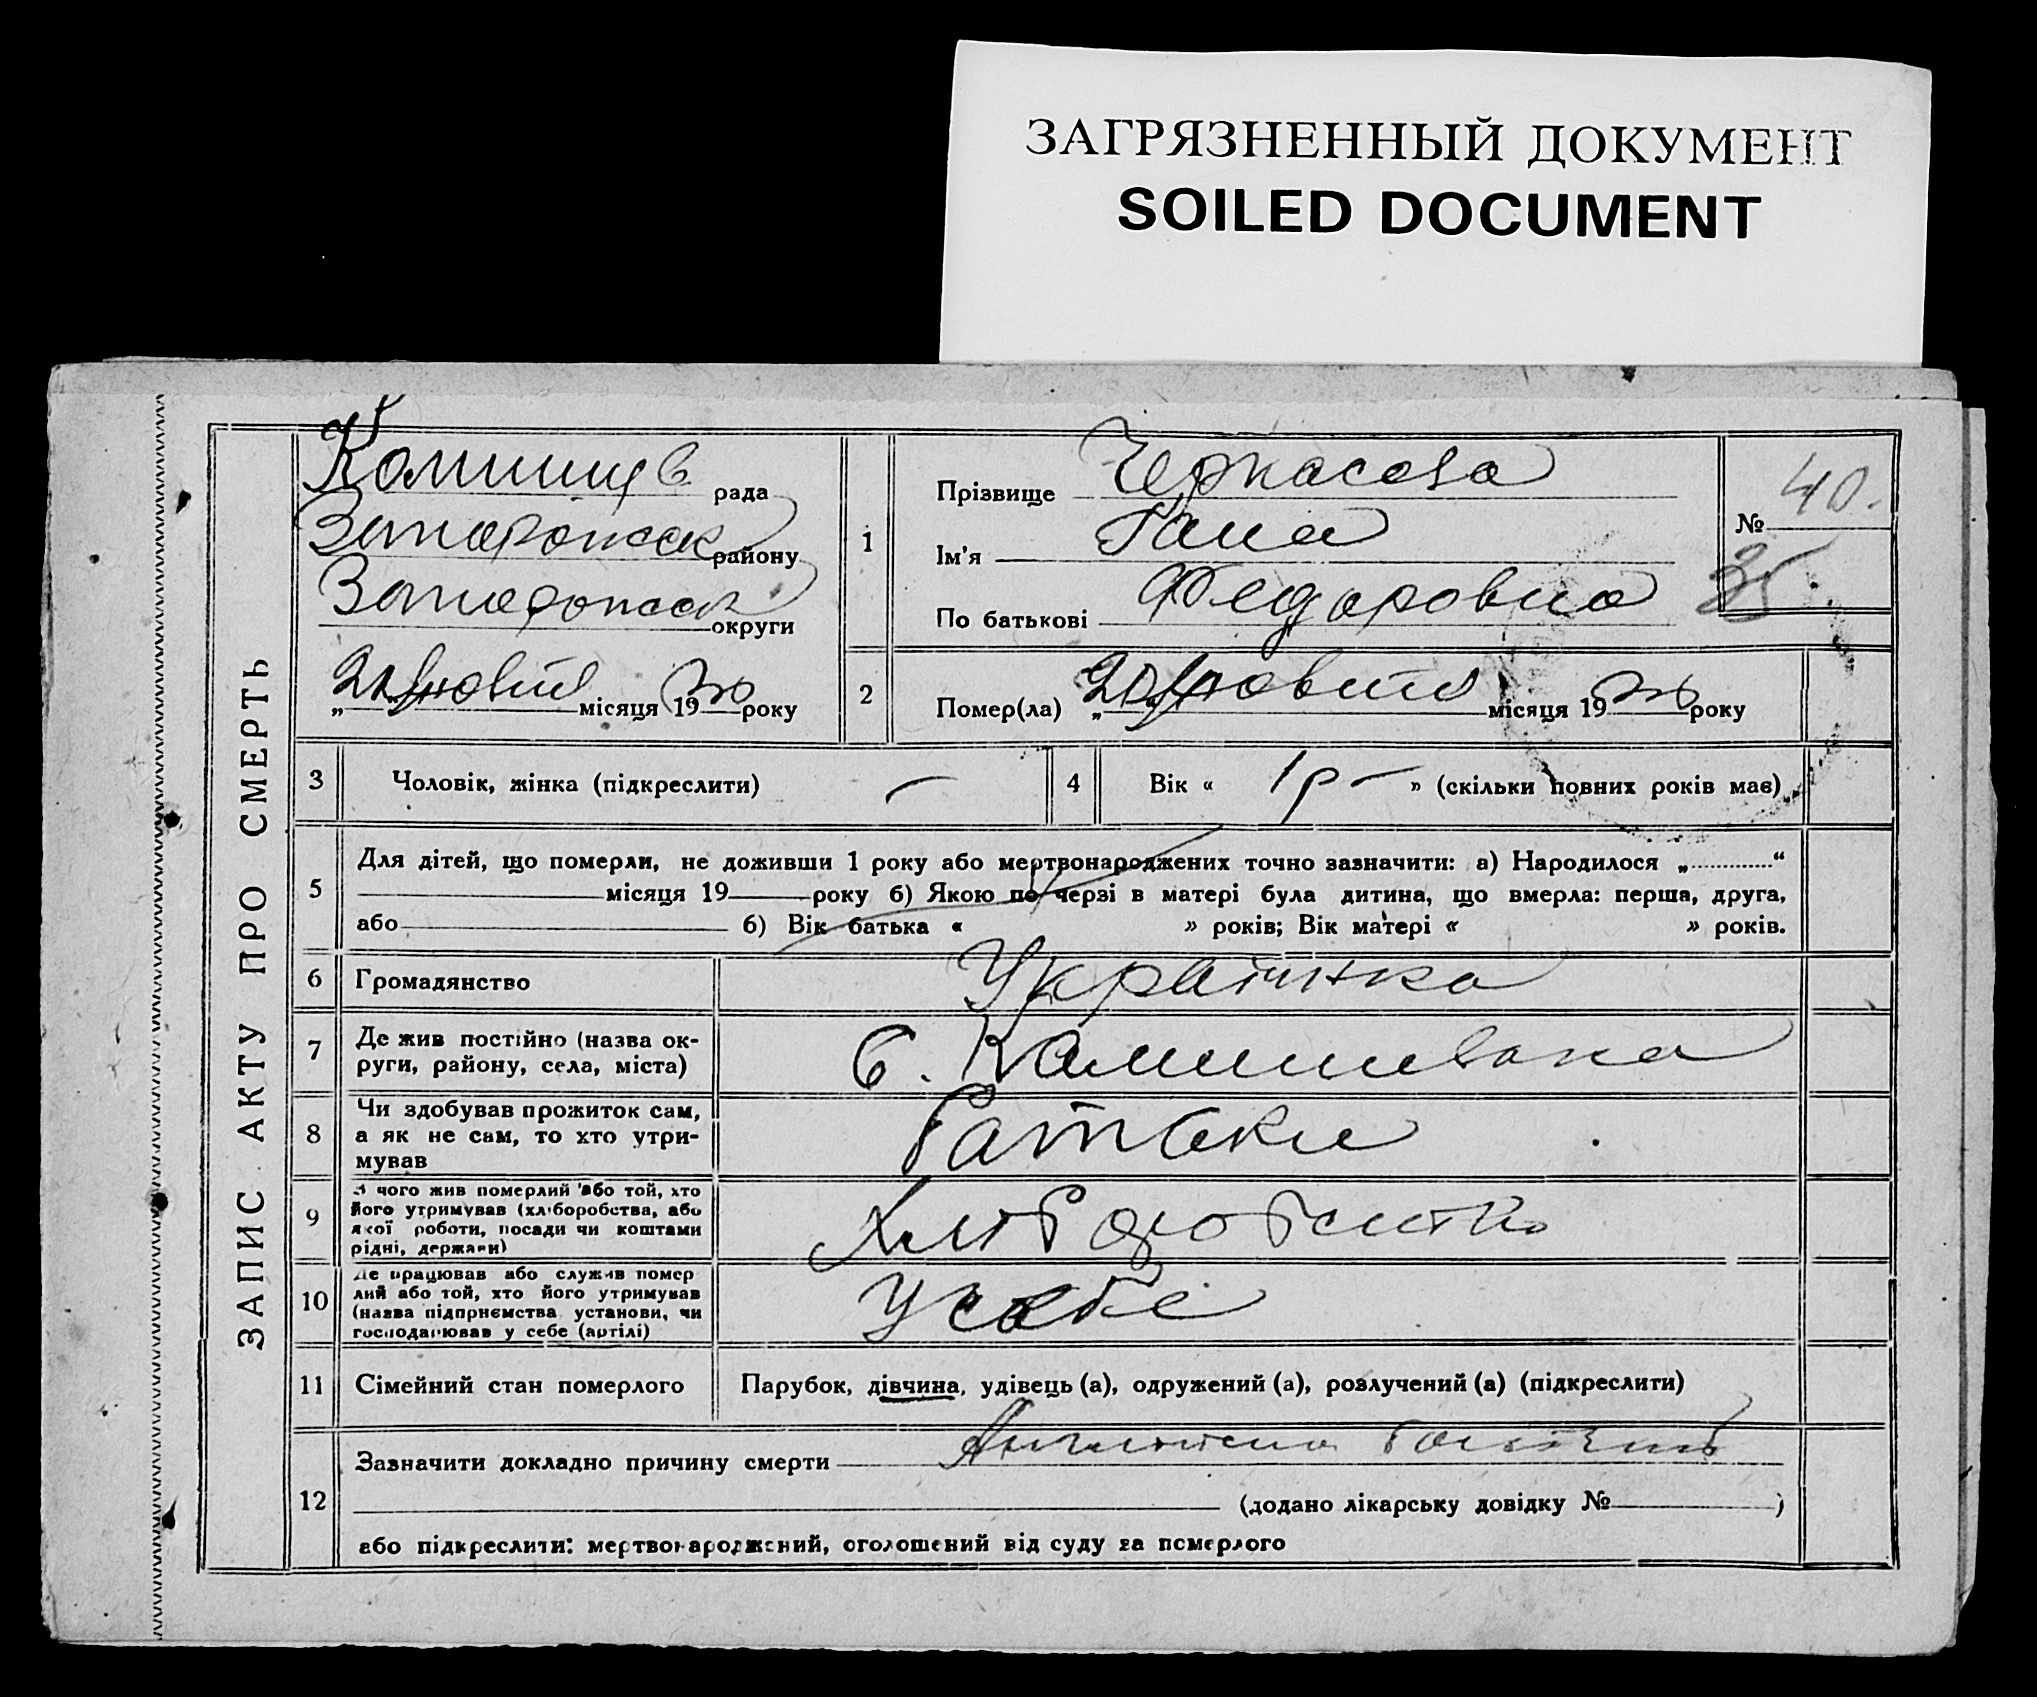 ЗАГРЯЗНЕННЫЙ ДОКУМЕНТ
SOILED DOCUMENT
ЗАПИС АКТУ ПРО СМЕРТЬ
рада
району
округи
„ місяця 19 30 року
1
Прізвище Черкасова
Ім'я Гана
По батькові Федоровна
№ 40.
35
2
Помер(ла) „20 місяця 19 30 року
3 Чоловік, жінка (підкреслити)
4 Вік « 1 р – » (скільки повних років має)
5
Для дітей, що померли, не доживши 1 року або мертвонароджених точно зазначити: а) Народилося „ “
місяця 19 року б) Якою по черзі в матері була дитина, що вмерла: перша, друга,
або б) Вік батька « » років; Вік матері « » років.
6 Громадянство Українка
7
Де жив постійно (назва ок-
руги, району, села, міста)
С. Камишеваха
8
Чи здобував прожиток сам,
а як не сам, то хто утри-
мував
Батьки
9
З чого жив померлий або той, хто
його утримував (хліборобства, або
якої роботи, посади чи коштами
рідні, держави)
10
Де працював або служив помер
лий або той, хто його утримував
(назва підпрнємства установи, чи
господарював у себе (артілі)
У себе
11 Сімейний стан померлого Парубок, дівчина, удівець (а), одружений (а), розлучений (а) (підкреслити)
12
Зазначити докладно причину смерти
(додано лікарську довідку № )
або підкреслити: мертвонароджений, оголошений від суду за померлого